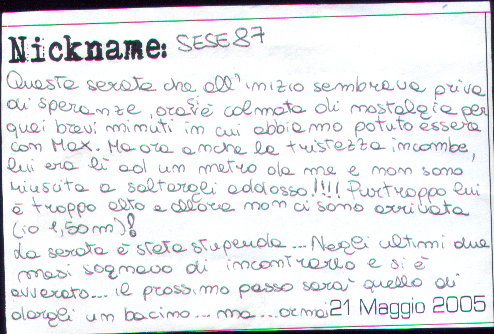 Nickname: SESE87
Questa serata che all'inizio sembrava priva
di speranze, ora si è colmata di nostalgia per
quei brevi minuti in cui abbiamo potuto essere
con Max. Ma ora anche la tristezza incombe,
lui era lì ad un metro da me e non sono
riuscita a saltargli addosso!!!! Purtroppo lui
è troppo alto e allora non ci sono arrivata
(io 1,50m)!
La serata è stata stupenda... Negli ultimi due
mesi sognavo di incontrarlo e si è
avverato... il prossimo passo sarai quello di
dargli un bacino... ma... ormai
21 Maggio 2005